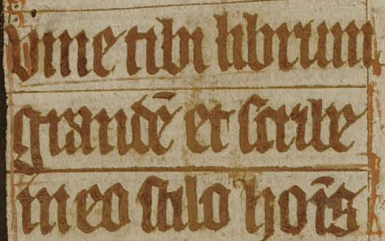 Vme tibi librum
grandē et scribe
in eo stilo hoīs